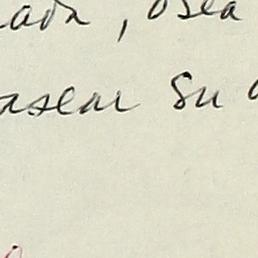 ada, osea
asear su